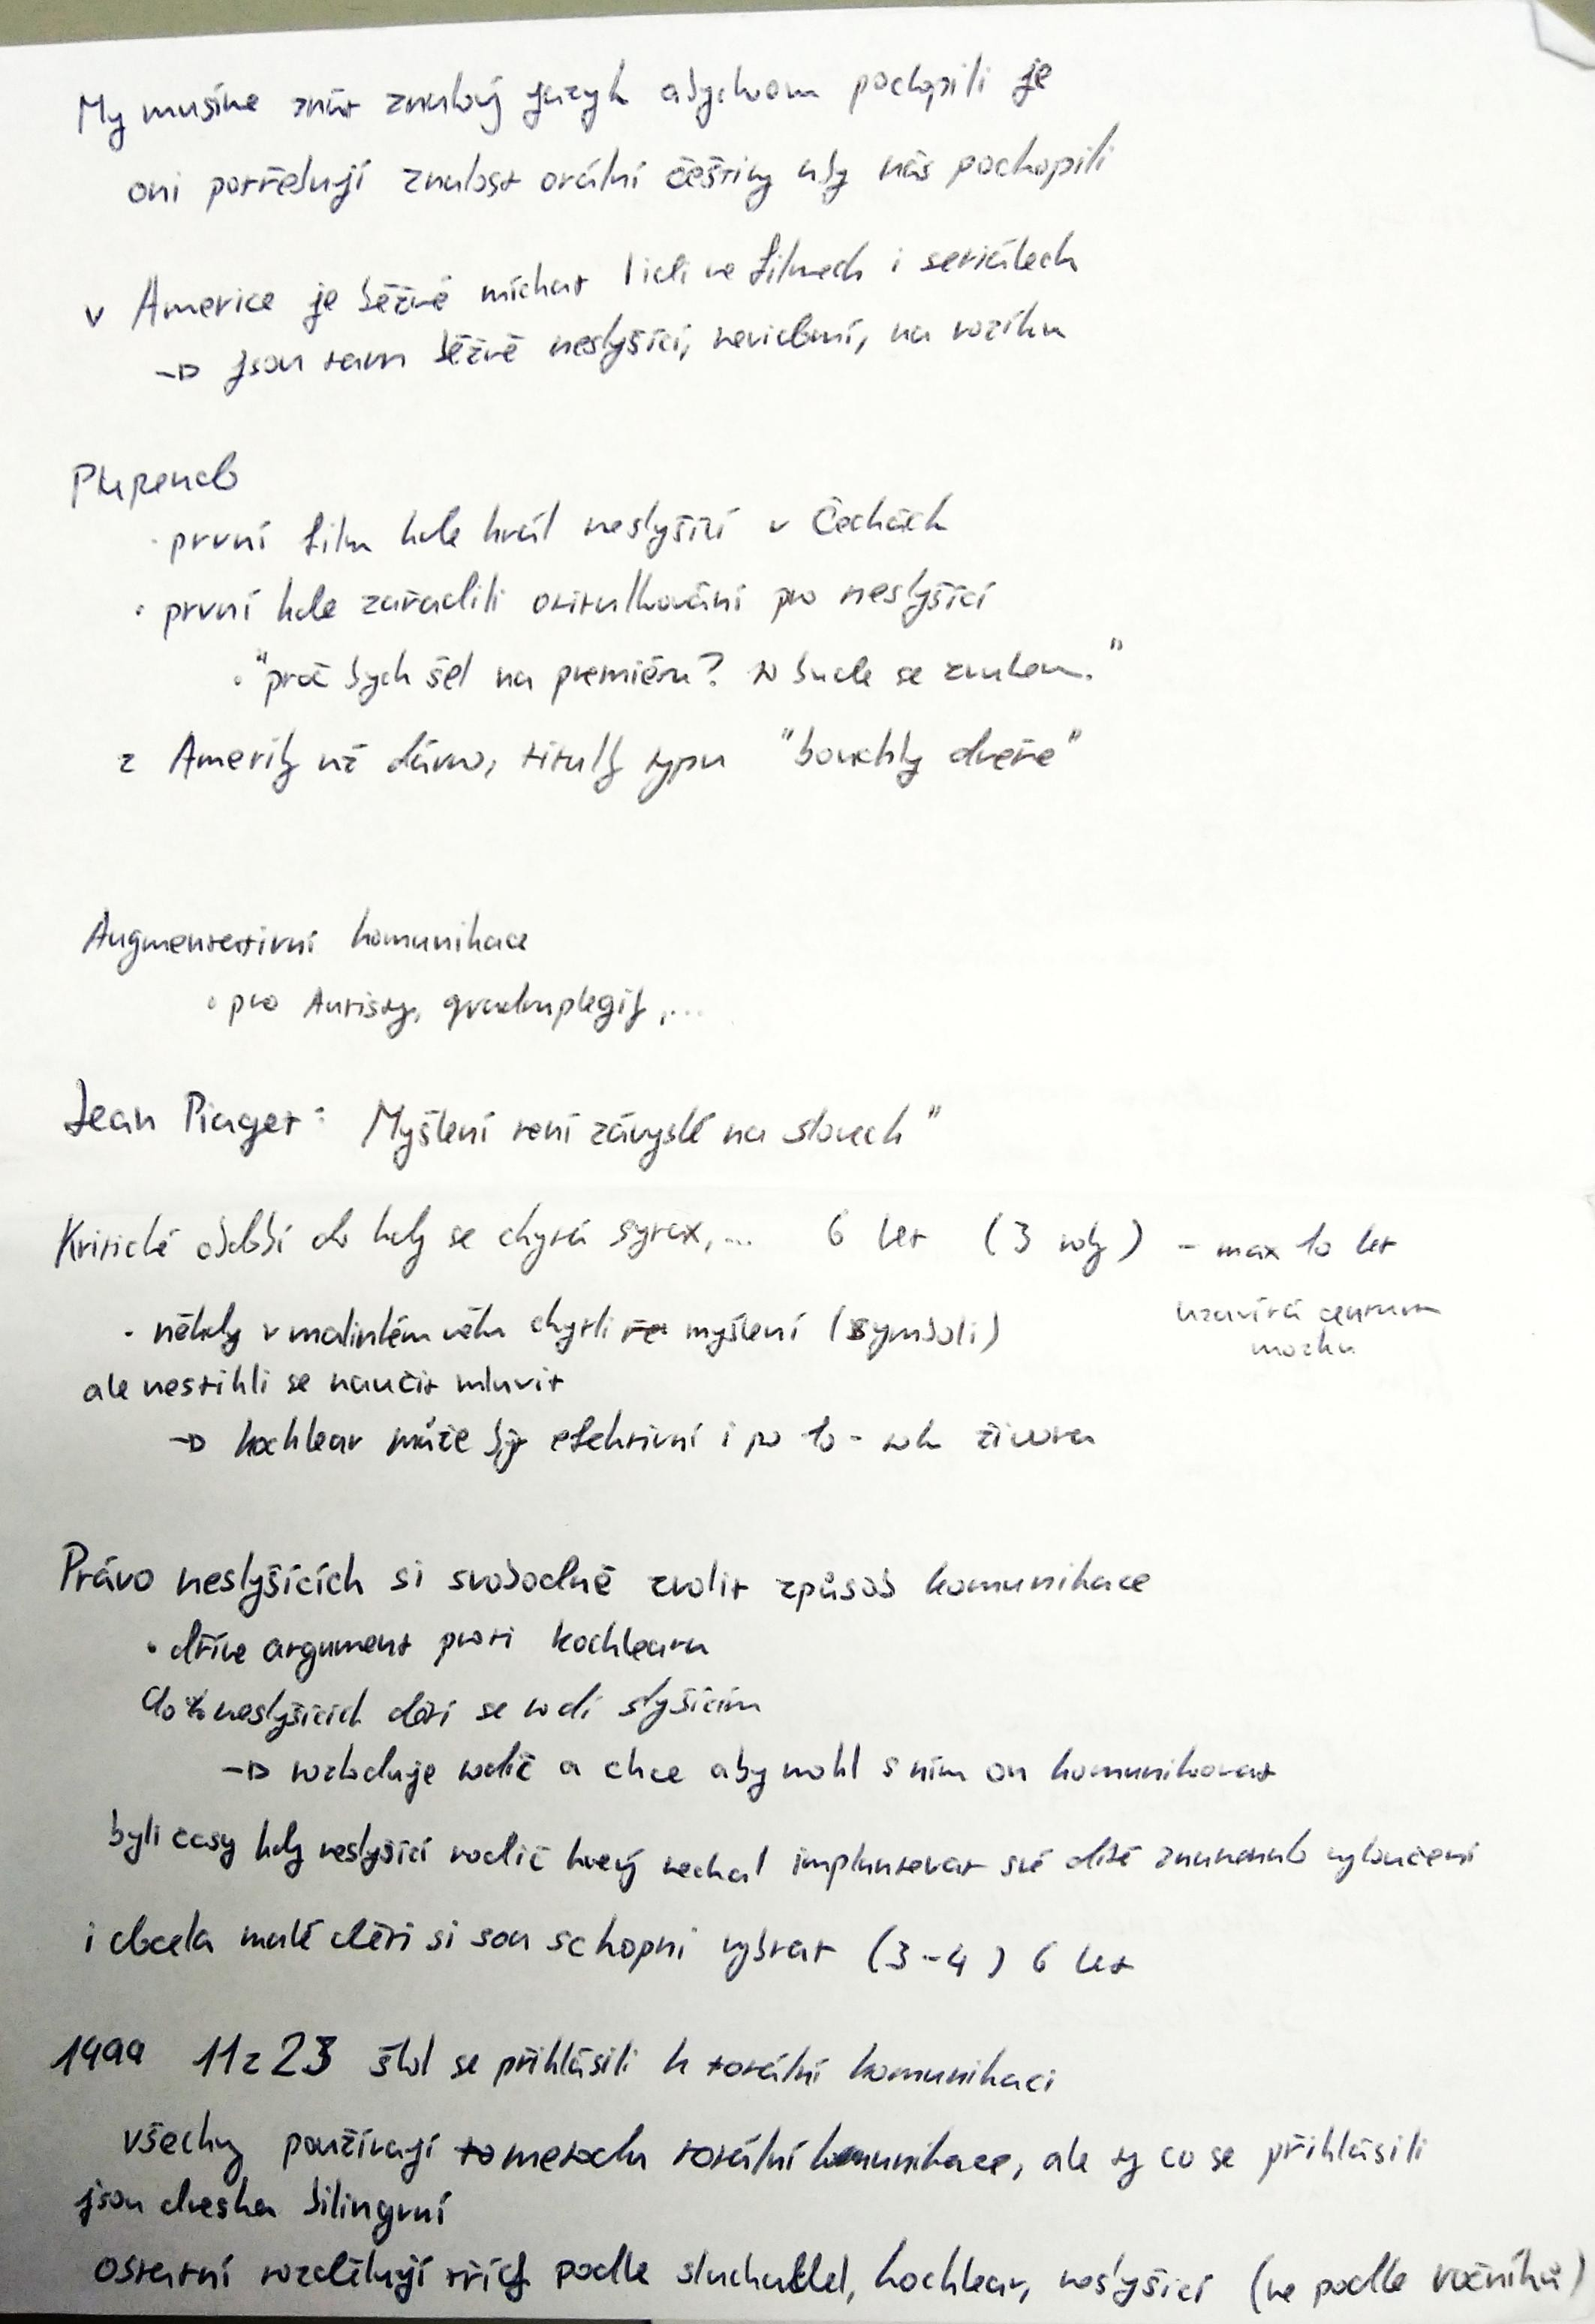 My musíme znát znakový jazyk abychom pochopili je
oni potřebují znalost orální češtiny aby nás pochopili
v Americe je běžné míchat lidi ve filmech i seriálech
→ jsou tam běžně neslyšící, nevidomí, na vozíku
Pupendo
· první film kde hrál neslyšící v Čechách
· první kde zařadili otitulkování pro neslyšící
· "proč bych šel na premiéru? to bude se zvukem."
z Ameriky už dávno, titulky typu "bouchly dveře"
Augmentativní komunikace
· pro Autisty, quadruplegiky,...
Jean Piaget: Myšlení není závyslé na slovech"
Kritické období do kdy se chytá syntax,... 6 let (3 roky) - max 10 let
uzavírá centrum
mozku
· někdy v malinkém věku chytli myšlení (symboli)
ale nestihli se naučit mluvit
→ kochlear může být efektivní i po 10-roku života
Právo neslyšících si svobodně zvolit způsob komunikace
· dříve argument proti kochlearu
90% neslyšících dětí se rodí slyšícím
→ rozhoduje rodič a chce aby mohl s ním on komunikovat
byli časy kdy neslyšící rodič který nechal implantovat své dítě znamenalo vyloučení
i docela malé děti si sou schopni vybrat (3-4) 6 let
1999 11 z 23 škol se přihlásili k totální komunikaci
všechny používají metodu totální komunikace, ale ty co se přihlásili
jsou dneska bilingvní
ostatní rozdělují třídy podle sluchadel, kochlear, neslyšící (ne podle ročníků)